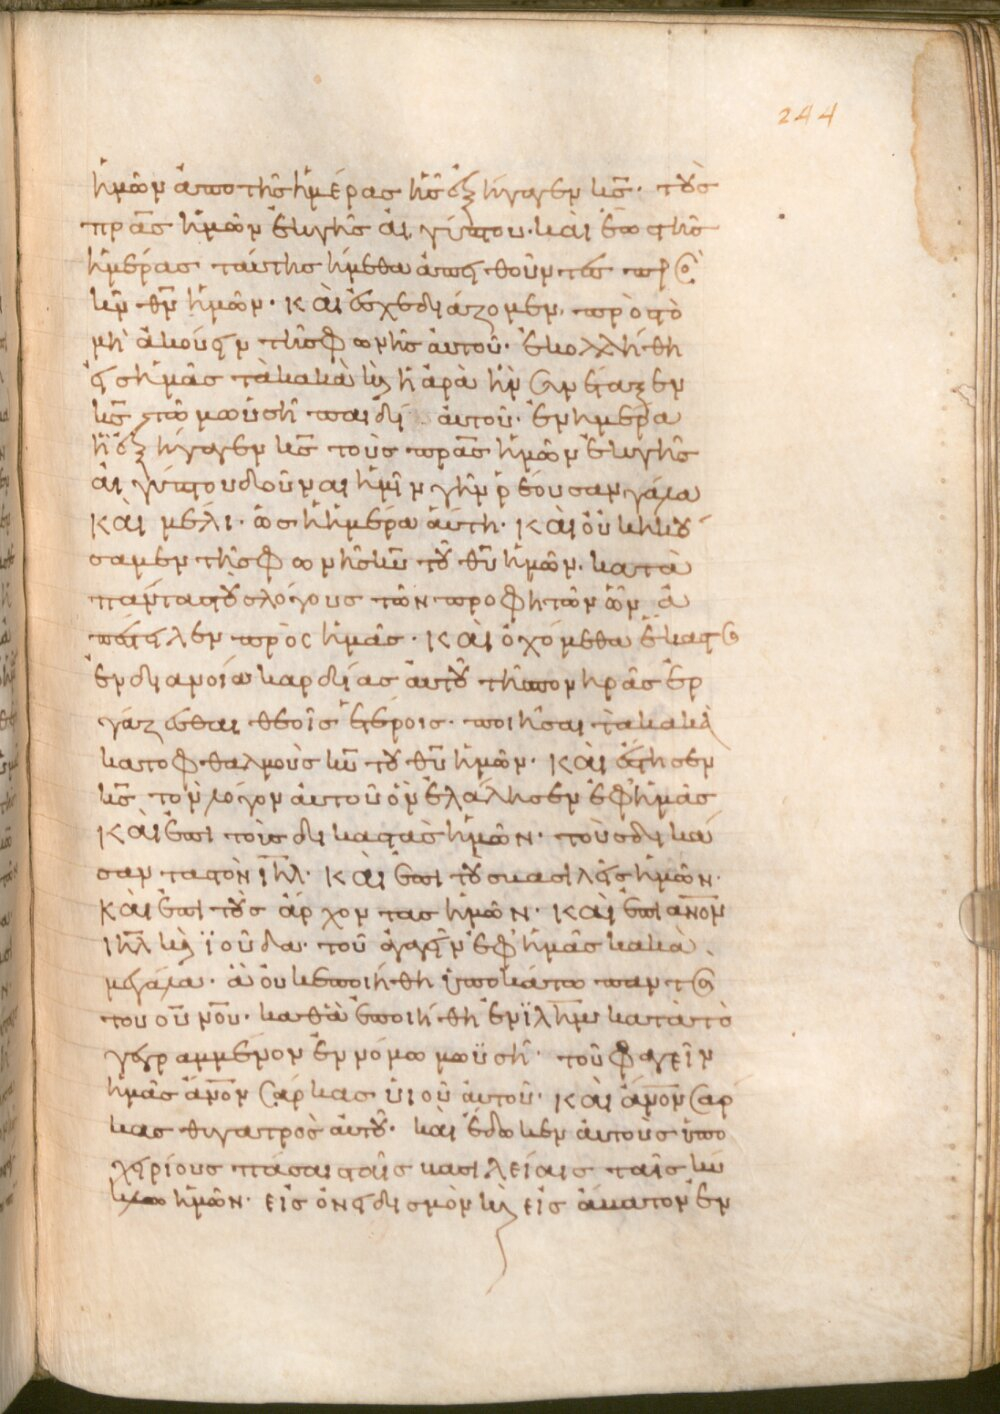 244
ἡμῶν ἀπο τῆς ἡμέρας ἧς ἐξήγαγεν κ̅ς̅· τοὺς
πρ̅α̅ς ἡμῶν ἐκ γῆς αἰγύπτου· καὶ ἕως τῆς
ἡμέρας ταύτης ἤμεθα ἀπειθοῦντες πρὸς
κ̅ν̅ θ̅ν̅ ἡμῶν· καὶ ἐσχεδιάζομεν, πρὸς τὸ
μὴ ἀκούειν τῆς φωνῆς αὐτοῦ· ἐκολλήθη
εἰς ἡμᾶς τὰ κακὰ κ̀ ἡ ἀρὰ ἣν συνέταξεν
κ̅ς̅ τῶ μωϋσῆ παιδὶ αὐτοῦ· ἐν ἡμέρα
ἧ ἐξήγαγεν κ̅ς̅ τοὺς πρ̅α̅ς ἡμῶν ἐκ γῆς
αἰγύπτου δοῦναι ἡμῖν γῆν ῥέουσαν γάλα
καὶ μέλι· ὡς ἡ ἡμέρα αὕτη· καὶ οὐκ ἠκού
σαμεν τῆς φωνῆς κ̅υ̅ τοῦ θ̅υ̅ ἡμῶν· κατὰ
πάντας τοὺς λόγους τῶν προφητῶν ὧν ἀ
πέστειλεν πρὸς ἡμᾶς· καὶ ὀχόμεθα ἕκαστος
ἐν διανοία καρδίας αὐτοῦ τῆς πονηρᾶς ἐρ
γάζεσθαι θεοῖς ἑτέροις· ποιῆσαι τὰ κακὰ
κατοφθαλμοὺς κ̅υ̅ τοῦ θ̅υ̅ ἡμῶν· καὶ ἔστησεν
κ̅ς̅ τον λόγον αὐτοῦ ὃν ἐλάλησεν ἐφ ἡμᾶς
καὶ ἐπι τοὺς δικαστὰς ἡμῶν· τοὺς δικά
σαντας τὸν ι̅η̅λ̅· καὶ ἐπι τοὺς βασιλεῖς ἡμῶν·
καὶ ἐπι τοὺς ἄρχοντας ἡμῶν· καὶ ἐπι α̅ν̅ο̅ν̅
ι̅η̅λ̅ κ̀ ϊούδα· τοῦ ἀγαγεῖν ἐφ ἡμᾶς κακὰ
μεγάλα· ἃ οὐκ ἐποιήθη ὑποκάτω παντὸς
του ο̅υ̅ν̅ο̅υ̅· καθὰ ἐποιήθη ἐν ϊ̅λ̅η̅μ̅ κατὰ τὸ
γεγραμμένον ἐν νόμω μωϋσῆ· τοῦ φαγεῖν
ἡμᾶς ἄ̅ν̅ο̅ν̅ σάρκας υἱοῦ αὐτοῦ· καὶ ἄ̅ν̅ο̅ν̅ σάρ
κας θυγατρὸς αὐτοῦ· καὶ ἔδωκεν αὐτοὺς ὑπο
χειρίους πάσαις ταῖς βασιλείαις ταῖς κύ
κλω ἡμῶν· εἰς ὀνειδισμὸν κ̀ εἰς ἄβατον ἐν